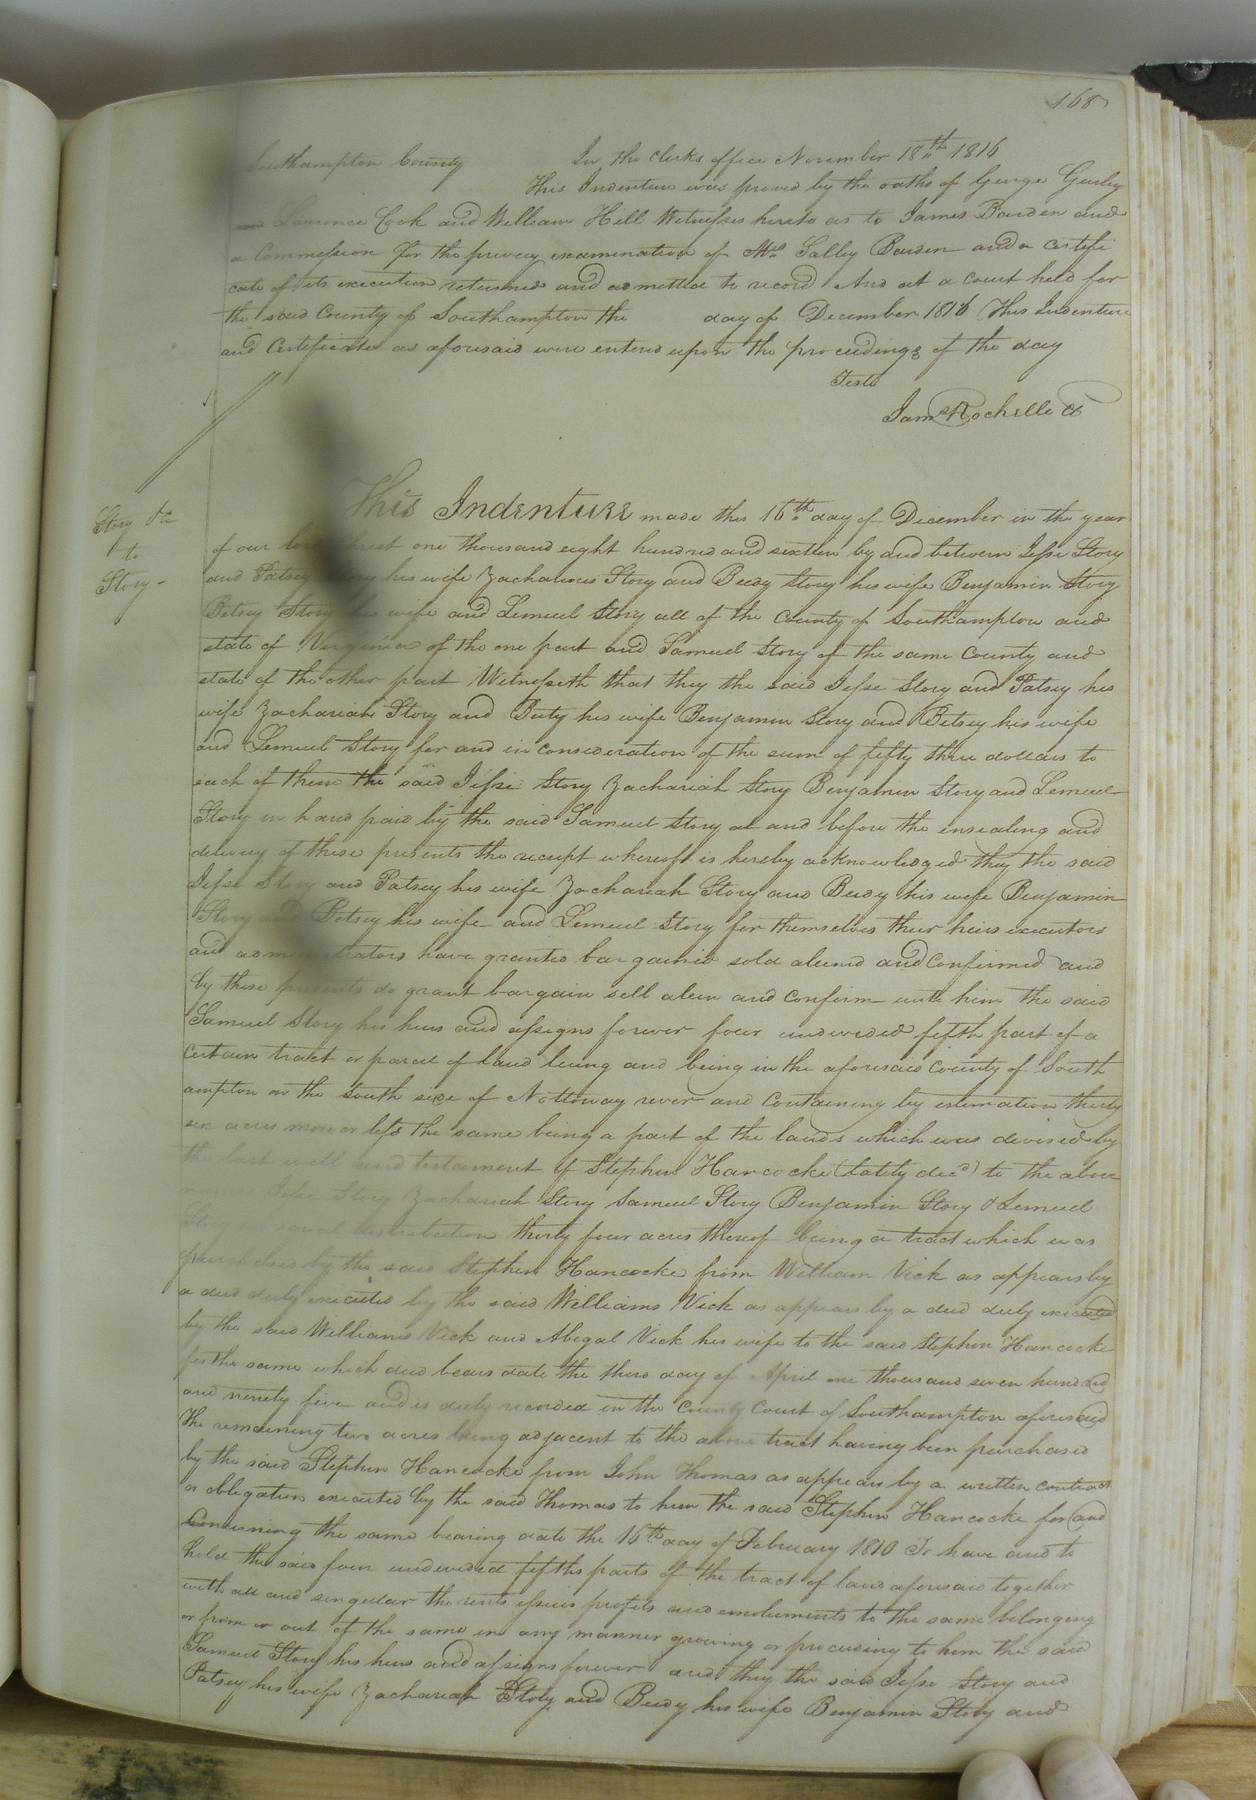 168
Southampton County In the clerks office November 18th 1816
This Indenture was proved by the oaths of George Gurley
and Laurence Cook and William Hill Witnesses hereto as to James Barden and
a Commission for the privey examination of Mrs Salley Barden and a certifi
cate of its execution returned and admitted to record And at a court held for
the said County of Southampton the day of December 1816 This Indenture
and Certificate as aforesaid were entered upon the proceedings of the day
Teste
Jams Rochelle Cl
Story &c
to
Story
This Indenture made this 16th day of December in the year
of our lord Christ one thousand eight hundred and sixteen by and between Jesse Story
and Patsey Story his wife Zacharius Story and Beedy Story his wife Benjamin Story
Betsey Story his wife and Lemuel Story all of the County of Southampton and
state of Virginia of the one part and Samuel Story of the same County and
state of the other part Witnesseth that they the said Jesse Story and Patsey his
wife Zachariah Story and Beedy his wife Benjamin Story and Betsey his wife
and Lemuel Story for and in consideration of the sum of fifty three dollars to
each of them the said Jesse Story Zachariah Story Benjamin Story and Lemuel
Story in hand paid by the said Samuel Story at and before the ensealing and
delivery of these presents the receipt whereof is hereby acknowledged they the said
Jesse Story and Patsey his wife Zachariah Story and Beedy his wife Benjamin
Story and Betsey his wife and Lemuel Story for themselves their heirs executors
and administrators have granted bargained sold aliend and confirmed and
by these presents do grant bargain sell alien and confirm unto him the said
Samuel Story his heirs and assigns forever four undivided fifth part of a
certain tract or parcel of land lieing and being in the aforesaid County of South
ampton on the South side of Nottoway river and Containing by estimation thirty
six acres more or less the same being a part of the lands which was devised by
the last will and testament of Stephen Hancocke (lately decd) to the above
named Jesse Story Zachariah Story Samuel Story Benjamin Story & Lemuel
Story equal distribution thirty four acres thereof being a tract which was
purchased by the said Stephen Hancocke from William Vick as appears by
a deed duly executed by the said Williams Vick as appears by a deed duly executed
by the said Williams Vick and Abigal Vick his wife to the said Stephen Hancocke
for the same which deed bears date the third day of April one thousand seven hundred
and ninety five and is duly recorded in the County Court of Southampton aforesaid
The remaining two acres being adjacent to the above tract having been purchased
by the said Stephen Hancocke from John Thomas as appears by a written contract
or obligation executed by the said Thomas to him the said Stephen Hancocke for and
concerning the same bearing date the 16th day of February 1810 To have and to
hold the said four undivided fifths parts of the tract of land aforesaid together
with all and singular the rents issues profits and emoluments to the same belonging
or from or out of the same in any manner growing or procuring to him the said
Samuel Story his heirs and assigns forever and they the said Jesse Story and
Patsey his wife Zachariah Story and Beedy his wife Benjamin Story and